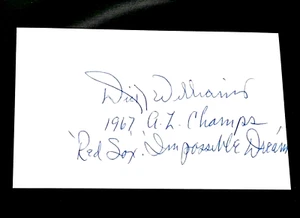 Dick Williams
1967 A.L. Champs
'Red Sox' 'Impossible Dream